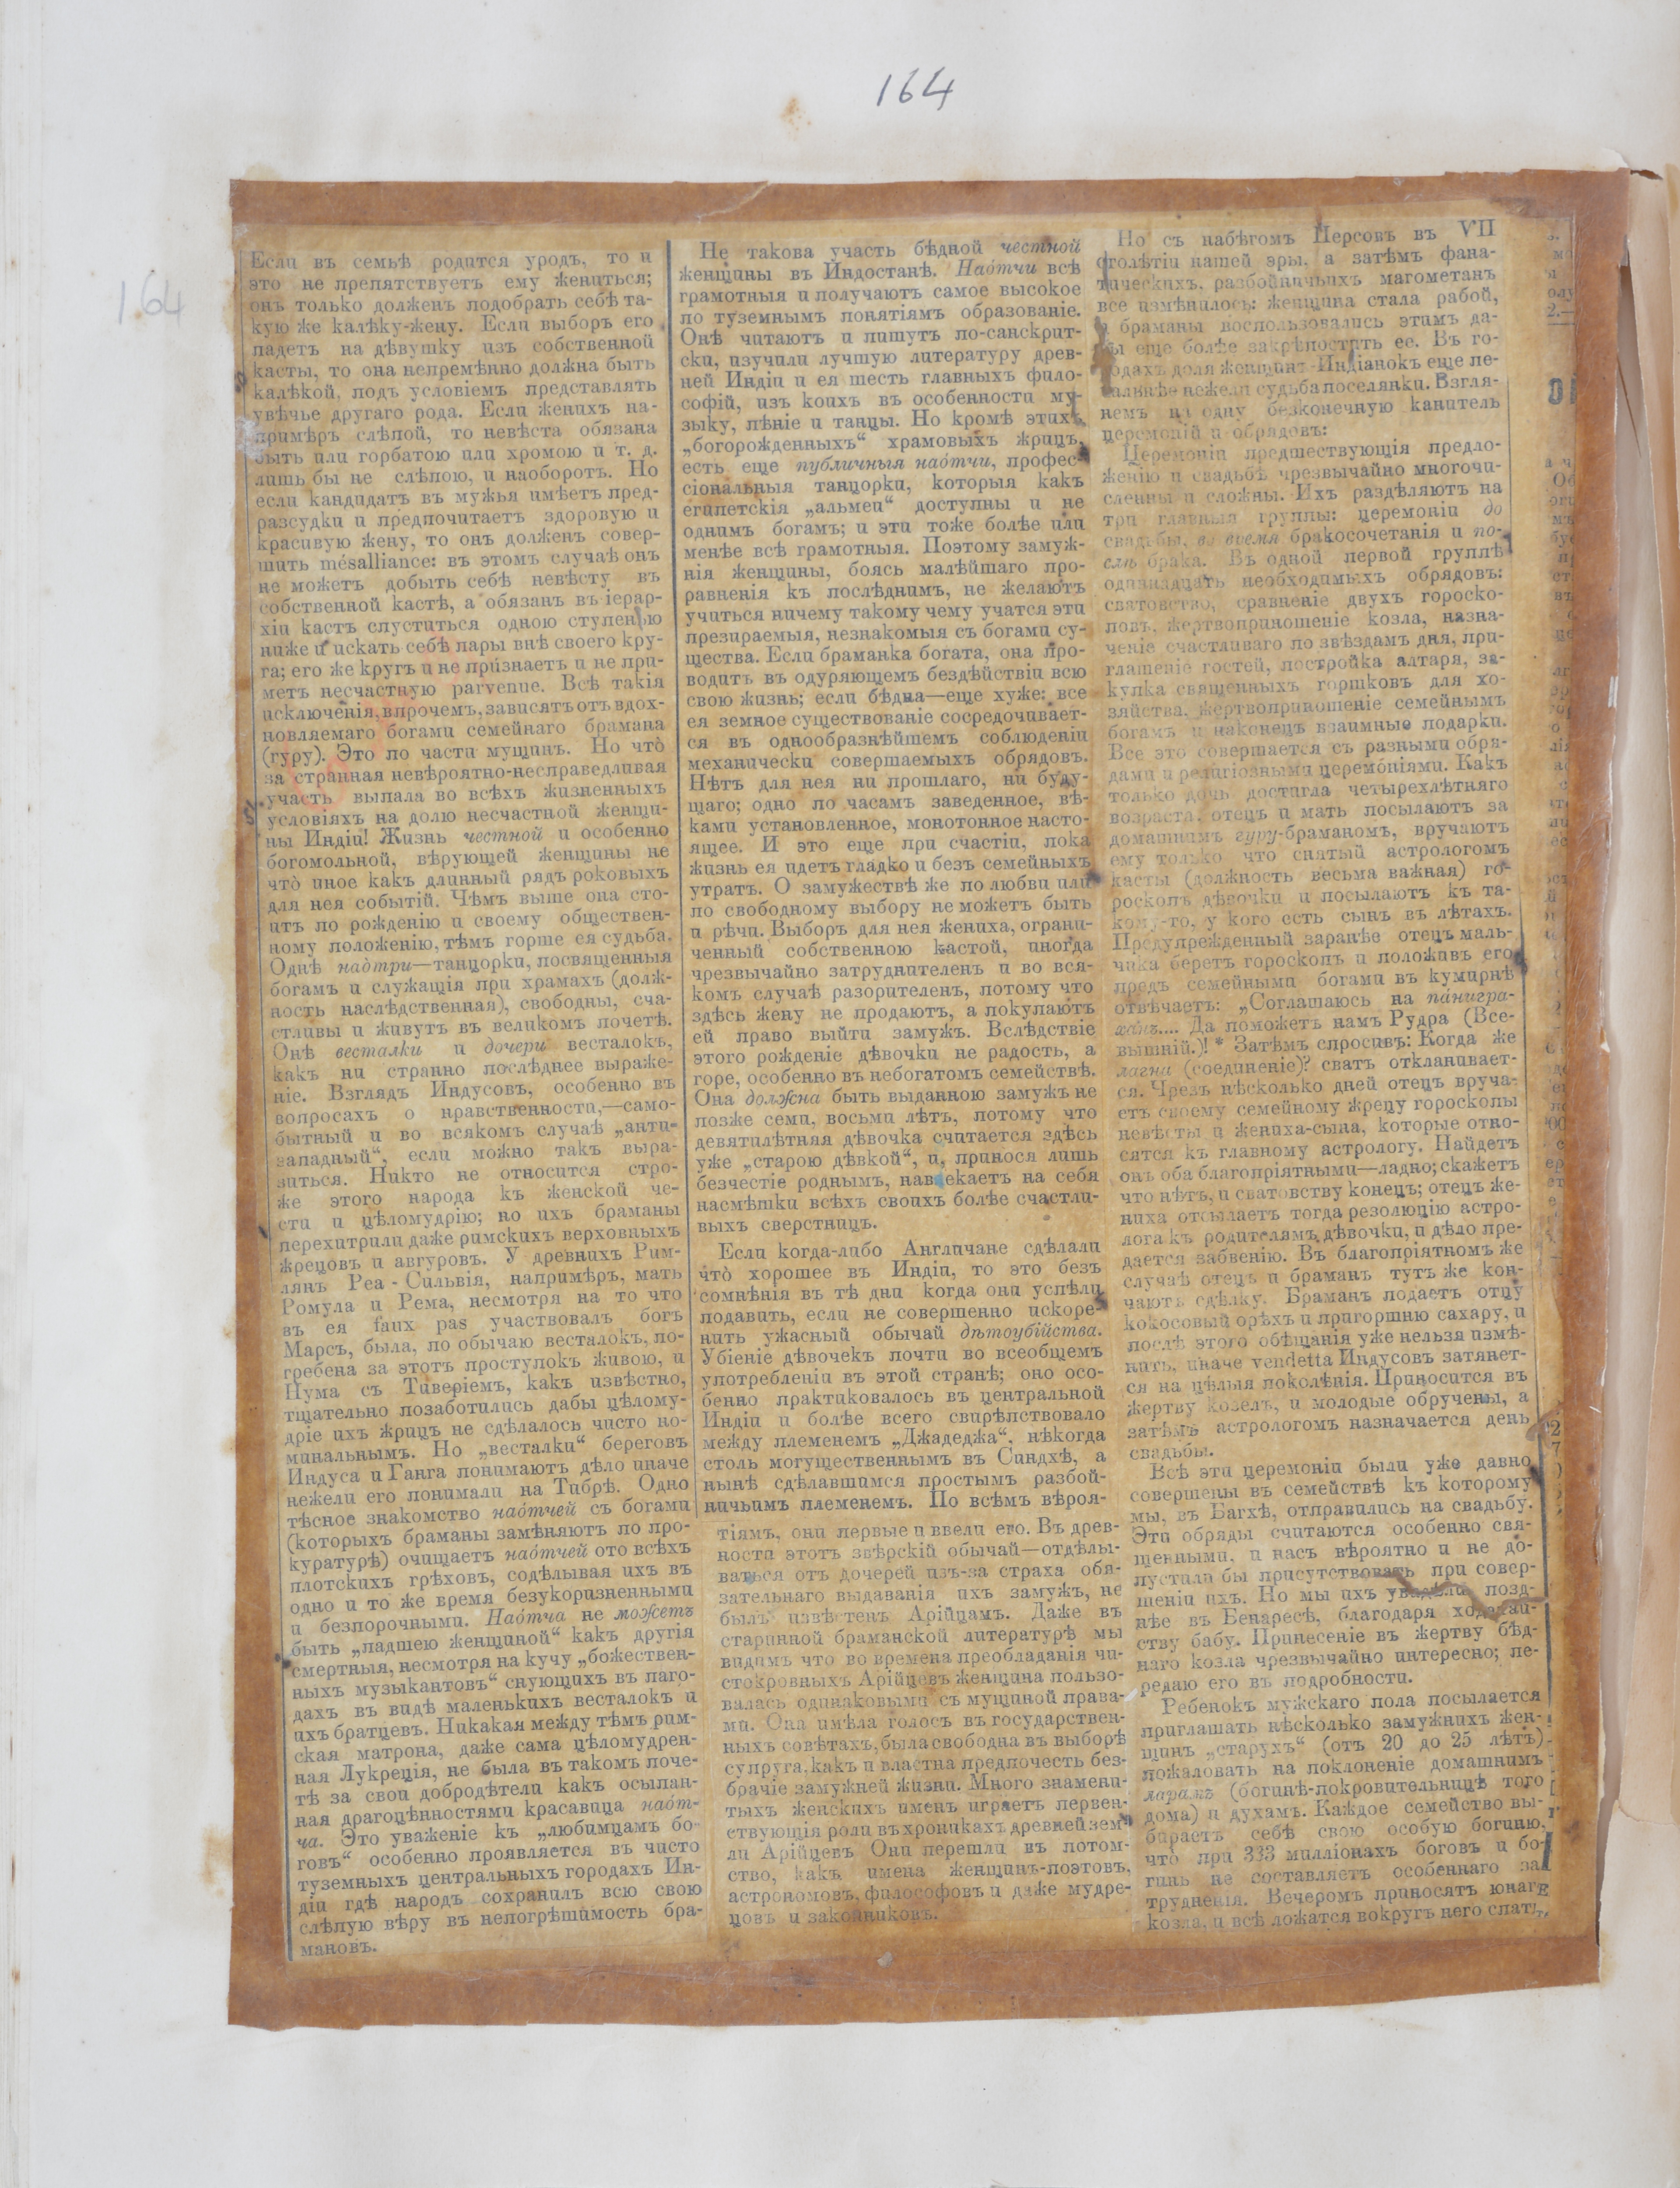 164
164
Если въ семьѣ родится уродъ, то и
это не препятствуетъ ему жениться;
онъ только долженъ подобрать себѣ та-
кую же калѣку-жену. Если выборъ его
падетъ на дѣвушку изъ собственной
касты, то она непремѣнно должна быть
калѣкой, подъ условіемъ представлять
увѣчье другаго рода. Если женихъ на-
примѣръ слѣпой, то невѣста обязана
быть или горбатою или хромою и т. д.
лишь бы не слѣпою, и наоборотъ. Но
если кандидатъ въ мужья имѣетъ пред-
разсудки и предпочитаетъ здоровую и
красивую жену, то онъ долженъ совер-
шить mésalliance: въ этомъ случаѣ онъ
не можетъ добыть себѣ невѣсту въ
собственной кастѣ, а обязанъ въ іерар-
хіи кастъ спуститься одною ступенью
ниже и искать себѣ пары внѣ своего кру-
га; его же кругъ и не признаетъ и не при-
метъ несчастную parvenue. Всѣ такія
исключенія, впрочемъ, зависятъ отъ вдох-
новляемаго богами семейнаго брамана
(гуру). Это по части мущинъ. Но что̀
за странная невѣроятно-несправедливая
участь выпала во всѣхъ жизненныхъ
условіяхъ на долю несчастной женщи-
ны Индіи! Жизнь честной и особенно
богомольной, вѣрующей женщины не
что̀ иное какъ длинный рядъ роковыхъ
для нея событій. Чѣмъ выше она сто-
итъ по рожденію и своему обществен-
ному положенію, тѣмъ горше ея судьба.
Однѣ нао́три—танцорки, посвященныя
богамъ и служащія при храмахъ (долж-
ность наслѣдственная), свободны, сча-
стливы и живутъ въ великомъ почетѣ.
Онѣ весталки и дочери весталокъ,
какъ ни странно послѣднее выраже-
ніе. Взглядъ Индусовъ, особенно въ
вопросахъ о нравственности,—само-
бытный и во всякомъ случаѣ „анти-
западный“, если можно такъ выра-
зиться. Никто не относится стро-
же этого народа къ женской че-
сти и цѣломудрію; но ихъ браманы
перехитрили даже римскихъ верховныхъ
жрецовъ и авгуровъ. У древнихъ Рим-
лянъ Реа - Сильвія, напримѣръ, мать
Ромула и Рема, несмотря на то что
въ ея faux pas участвовалъ богъ
Марсъ, была, по обычаю весталокъ, по-
гребена за этотъ проступокъ живою, и
Нума съ Тиверіемъ, какъ извѣстно,
тщательно позаботились дабы цѣлому-
дріе ихъ жрицъ не сдѣлалось чисто но-
минальнымъ. Но „весталки“ береговъ
Индуса и Ганга понимаютъ дѣло иначе
нежели его понимали на Тибрѣ. Одно
тѣсное знакомство нао́тчей съ богами
(которыхъ браманы замѣняютъ по про-
куратурѣ) очищаетъ нао́тчей ото всѣхъ
плотскихъ грѣховъ, содѣлывая ихъ въ
одно и то же время безукоризненными
и безпорочными. Нао́тча не можетъ
быть „падшею женщиной“ какъ другія
смертныя, несмотря на кучу „божествен-
ныхъ музыкантовъ“ снующихъ въ паго-
дахъ въ видѣ маленькихъ весталокъ и
ихъ братцевъ. Никакая между тѣмъ рим-
ская матрона, даже сама цѣломудрен-
ная Лукреція, не была въ такомъ поче-
тѣ за свои добродѣтели какъ осыпан-
ная драгоцѣнностями красавица нао́т-
ча. Это уваженіе къ „любимцамъ бо-
говъ“ особенно проявляется въ чисто
туземныхъ центральныхъ городахъ Ин-
діи гдѣ народъ сохранилъ всю свою
слѣпую вѣру въ непогрѣшимость бра-
мановъ.
Не такова участь бѣдной честной
женщины въ Индостанѣ. Нао́тчи всѣ
грамотныя и получаютъ самое высокое
по туземнымъ понятіямъ образованіе.
Онѣ читаютъ и пишутъ по-санскрит-
ски, изучили лучшую литературу древ-
ней Индіи и ея шесть главныхъ фило-
софій, изъ коихъ въ особенности му-
зыку, пѣніе и танцы. Но кромѣ этихъ
„богорожденныхъ“ храмовыхъ жрицъ,
есть еще публичныя нао́тчи, профес-
сіональныя танцорки, которыя какъ
египетскія „альмеи“ доступны и не
однимъ богамъ; и эти тоже болѣе или
менѣе всѣ грамотныя. Поэтому замуж-
нія женщины, боясь малѣйшаго про-
равненія къ послѣднимъ, не желаютъ
учиться ничему такому чему учатся эти
презираемыя, незнакомыя съ богами су-
щества. Если браманка богата, она про-
водитъ въ одуряющемъ бездѣйствіи всю
свою жизнь; если бѣдна—еще хуже: все
ея земное существованіе сосредочивает-
ся въ однообразнѣйшемъ соблюденіи
механически совершаемыхъ обрядовъ.
Нѣтъ для нея ни прошлаго, ни буду-
щаго; одно по часамъ заведенное, вѣ-
ками установленное, монотонное насто-
ящее. И это еще при счастіи, пока
жизнь ея идетъ гладко и безъ семейныхъ
утратъ. О замужествѣ же по любви или
по свободному выбору не можетъ быть
и рѣчи. Выборъ для нея жениха, ограни-
ченный собственною кастой, иногда
чрезвычайно затруднителенъ и во вся-
комъ случаѣ разорителенъ, потому что
здѣсь жену не продаютъ, а покупаютъ
ей право выйти замужъ. Вслѣдствіе
этого рожденіе дѣвочки не радость, а
горе, особенно въ небогатомъ семействѣ.
Она должна быть выданною замужъ не
позже семи, восьми лѣтъ, потому что
девятилѣтняя дѣвочка считается здѣсь
уже „старою дѣвкой“, и, принося лишь
безчестіе роднымъ, навлекаетъ на себя
насмѣшки всѣхъ своихъ болѣе счастли-
выхъ сверстницъ.
Если когда-либо Англичане сдѣлали
что̀ хорошее въ Индіи, то это безъ
сомнѣнія въ тѣ дни когда они успѣли
подавить, если не совершенно искоре-
нить ужасный обычай дѣтоубійства.
Убіеніе дѣвочекъ почти во всеобщемъ
употребленіи въ этой странѣ; оно осо-
бенно практиковалось въ центральной
Индіи и болѣе всего свирѣпствовало
между племенемъ „Джадеджа“, нѣкогда
столь могущественнымъ въ Синдхѣ, а
нынѣ сдѣлавшимся простымъ разбой-
ничьимъ племенемъ. По всѣмъ вѣроя-
тіямъ, они первые и ввели его. Въ древ-
ности этотъ звѣрскій обычай—отдѣлы-
ваться отъ дочерей изъ-за страха обя-
зательнаго выдаванія ихъ замужъ, не
былъ извѣстенъ Арійцамъ. Даже въ
старинной браманской литературѣ мы
видимъ что во времена преобладанія чи-
стокровныхъ Арійцевъ женщина пользо-
валась одинаковыми съ мущиной права-
ми. Она имѣла голосъ въ государствен-
ныхъ совѣтахъ, была свободна въ выборѣ
супруга, какъ и властна предпочесть без-
брачіе замужней жизни. Много знамени-
тыхъ женскихъ именъ играетъ первен-
ствующія роли въ хроникахъ древней зем-
ли Арійцевъ Они перешли въ потом-
ство, какъ имена женщинъ-поэтовъ,
астрономовъ, философовъ и даже мудре-
цовъ и законниковъ.
Но съ набѣгомъ Персовъ въ VII
столѣтіи нашей эры, а затѣмъ фана-
тическихъ, разбойничьихъ магометанъ
все измѣнилось: женщина стала рабой,
браманы воспользовались этимъ да-
бы еще болѣе закрѣпостить ее. Въ го-
родахъ доля женщинъ-Индіанокъ еще пе-
чальнѣе нежели судьба поселянки. Взгля-
немъ на одну безконечную канитель
церемоній и обрядовъ:
Церемоніи предшествующія предло-
женію и свадьбѣ чрезвычайно многочи-
сленны и сложны. Ихъ раздѣляютъ на
три главныя группы: церемоніи до
свадьбы, во время бракосочетанія и по-
слѣ брака. Въ одной первой группѣ
одиннадцать необходимыхъ обрядовъ:
сватовство, сравненіе двухъ гороско-
повъ, жертвоприношеніе козла, назна-
ченіе счастливаго по звѣздамъ дня, при-
глашеніе гостей, постройка алтаря, за-
купка священныхъ горшковъ для хо-
зяйства, жертвоприношеніе семейнымъ
богамъ и наконецъ взаимные подарки.
Все это совершается съ разными обря-
дами и религіозными церемо́ніями. Какъ
только дочь достигла четырехлѣтняго
возраста, отецъ и мать посылаютъ за
домашнимъ гуру-браманомъ, вручаютъ
ему только что снятый астрологомъ
касты (должность весьма важная) го-
роскопъ дѣвочки и посылаютъ къ та-
кому-то, у кого есть сынъ въ лѣтахъ.
Предупрежденный заранѣе отецъ маль-
чика беретъ гороскопъ и положивъ его
предъ семейными богами въ кумирнѣ
отвѣчаетъ: „Соглашаюсь на па́нигра-
ха́нъ.... Да поможетъ намъ Рудра (Все-
вышній.)! * Затѣмъ спросивъ: Когда же
лагна (соединеніе)? сватъ откланивает-
ся. Чрезъ нѣсколько дней отецъ вруча-
етъ своему семейному жрецу гороскопы
невѣсты и жениха-сына, которые отно-
сятся къ главному астрологу. Найдетъ
онъ оба благопріятными—ладно; скажетъ
что нѣтъ, и сватовству конецъ; отецъ же-
ниха отсылаетъ тогда резолюцію астро-
лога къ родителямъ дѣвочки, и дѣло пре-
дается забвенію. Въ благопріятномъ же
случаѣ отецъ и браманъ тутъ же кон-
чаютъ сдѣлку. Браманъ подаетъ отцу
кокосовый орѣхъ и пригоршню сахару, и
послѣ этого обѣщанія уже нельзя измѣ-
нить, иначе vendetta Индусовъ затянет-
ся на цѣлыя поколѣнія. Приносится въ
жертву козелъ, и молодые обручены, а
затѣмъ астрологомъ назначается день
свадьбы.
Всѣ эти церемоніи были уже давно
совершены въ семействѣ къ которому
мы, въ Багхѣ, отправились на свадьбу.
Эти обряды считаются особенно свя-
щенными, и насъ вѣроятно и не до-
пустили бы присутствовать при совер-
шеніи ихъ. Но мы ихъ увидѣли позд-
нѣе въ Бенаресѣ, благодаря ходатай-
ству бабу. Принесеніе въ жертву бѣд-
наго козла чрезвычайно интересно; пе-
редаю его въ подробности.
Ребенокъ мужскаго пола посылается
приглашать нѣсколько замужнихъ жен-
щинъ „старухъ“ (отъ 20 до 25 лѣтъ)
пожаловать на поклоненіе домашнимъ
ларамъ (богинѣ-покровительницѣ того
дома) и духамъ. Каждое семейство вы-
бираетъ себѣ свою особую богиню,
что̀ при 333 милліонахъ боговъ и бо-
гинь не составляетъ особеннаго за-
трудненія. Вечеромъ приносятъ юнаго
козла, и всѣ ложатся вокругъ него спать,